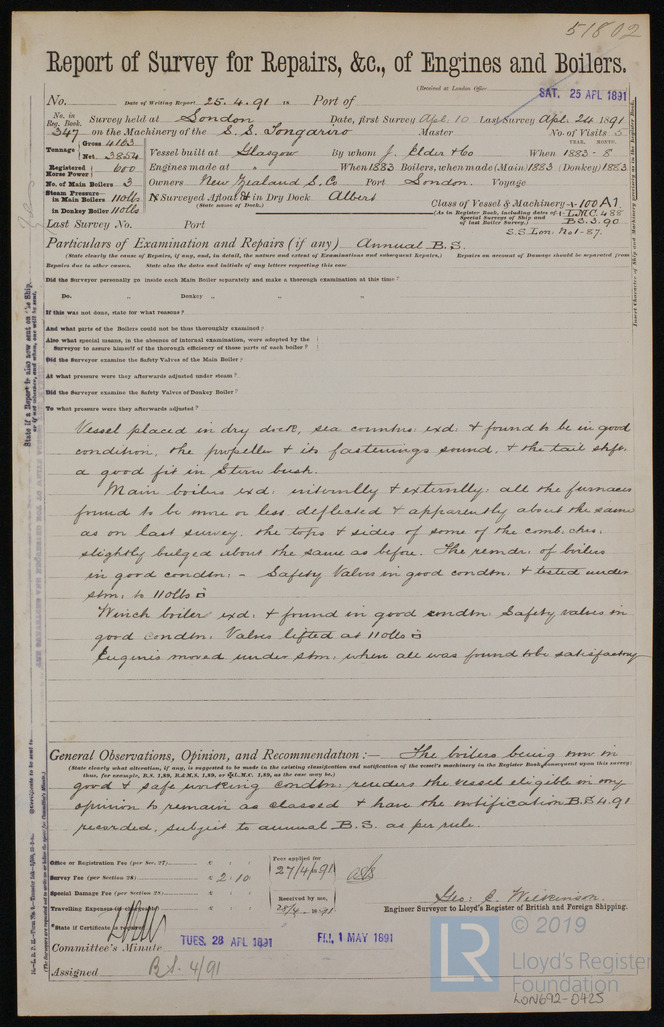 51802
Report of Survey for Repairs, &c., of Engines and Boilers.
(Received at London Office
SAT. 25 APL 1891
No. Date of Writing Report 25.4.91 Port of
No. in Reg. Book. Survey held at London Date, first Survey Apl. 10 Last Survey Apl. 24 1891
347 on the Machinery of the S.S. Tongariro Master No. of Visits 5
Tonnage Gross 4163 Net 3854
Vessel built at Glasgow By whom J. Elder & Co When 1883 - 8
YEAR. MONTH.
Registered Horse Power 600 Engines made at " When 1883 Boilers, when made (Main) 1883 (Donkey) 1883
No. of Main Boilers 3 Owners New Zealand S. Co Port London. Voyage
Steam Pressure in Main Boilers 110 lbs
in Donkey Boiler 110 lbs
Surveyed Afloat & in Dry Dock Albert
(State name of Dock.)
Class of Vessel & Machinery 100 A1
(As in Register Book, including dates of Special Surveys of Ship and of last Boiler Survey.)
L.M.C. 4.88
B.S. 3.90
S.S. Lon: No1-87.
Last Survey No. Port
Particulars of Examination and Repairs (if any) Annual B.S.
(State clearly the cause of Repairs, if any, and, in detail, the nature and extent of Examinations and subsequent Repairs.) Repairs on account of Damage should be separated from
Repairs due to other causes. State also the dates and initials of any letters respecting this case
Did the Surveyor personally go inside each Main Boiler separately and make a thorough examination at this time?
Do. " Donkey " "
If this was not done, state for what reasons?
And what parts of the Boilers could not be thus thoroughly examined?
Also what special means, in the absence of internal examination, were adopted by the
Surveyor to assure himself of the thorough efficiency of those parts of each boiler?
Did the Surveyor examine the Safety Valves of the Main Boiler?
At what pressure were they afterwards adjusted under steam?
Did the Surveyor examine the Safety Valves of Donkey Boiler?
To what pressure were they afterwards adjusted?
Vessel placed in dry dock, sea connns: exd: & found to be in good
condition, the propeller & its fastenings sound, & the tail shft.
a good fit in stern bush.
Main boilers exd: internally & externally: all the furnaces
found to be more or less deflected & apparently about the same
as on last survey. the tops & sides of some of the comb. chrs.
slightly bulged about the same as before. The remdr: of boilers
in good condtn: - Safety Valves in good condtn: & tested under
stm: to 110 lbs □
Winch boiler exd: & found in good condtn: Safety valves in
good condtn: Valves lifted at 110 lbs □
Engines moved under stm: when all was found to be satisfactory
General Observations, Opinion, and Recommendation:— The boilers being now in
(State clearly what alteration, if any, is suggested to be made in the existing classification and notification of the vessel's machinery in the Register Book consequent upon this survey:
thus, for example, B.S. 1,89, B.&M.S. 1,89, or ✠L.M.C. 1,89, as the case may be.)
good & safe working condtn: renders the vessel eligible in my
opinion to remain as classed & have the notification B.S. 4.91
recorded, subject to annual B.S. as per rule.
Office or Registration Fee (per Sec. 27)
Survey Fee (per Section 28) £ 2:10
Special Damage Fee (per Section 28)
Travelling Expenses
Fees applied for
27/4/91
Received by me,
Geo: C. Wilkinson.
Engineer Surveyor to Lloyd's Register of British and Foreign Shipping.
State if Certificate is required
Committee's Minute
TUES. 28 APL 1891
FRI. 1 MAY 1891
Assigned B.S. 4/91
© 2019
LR
Lloyd's Register
Foundation
LON692-0425